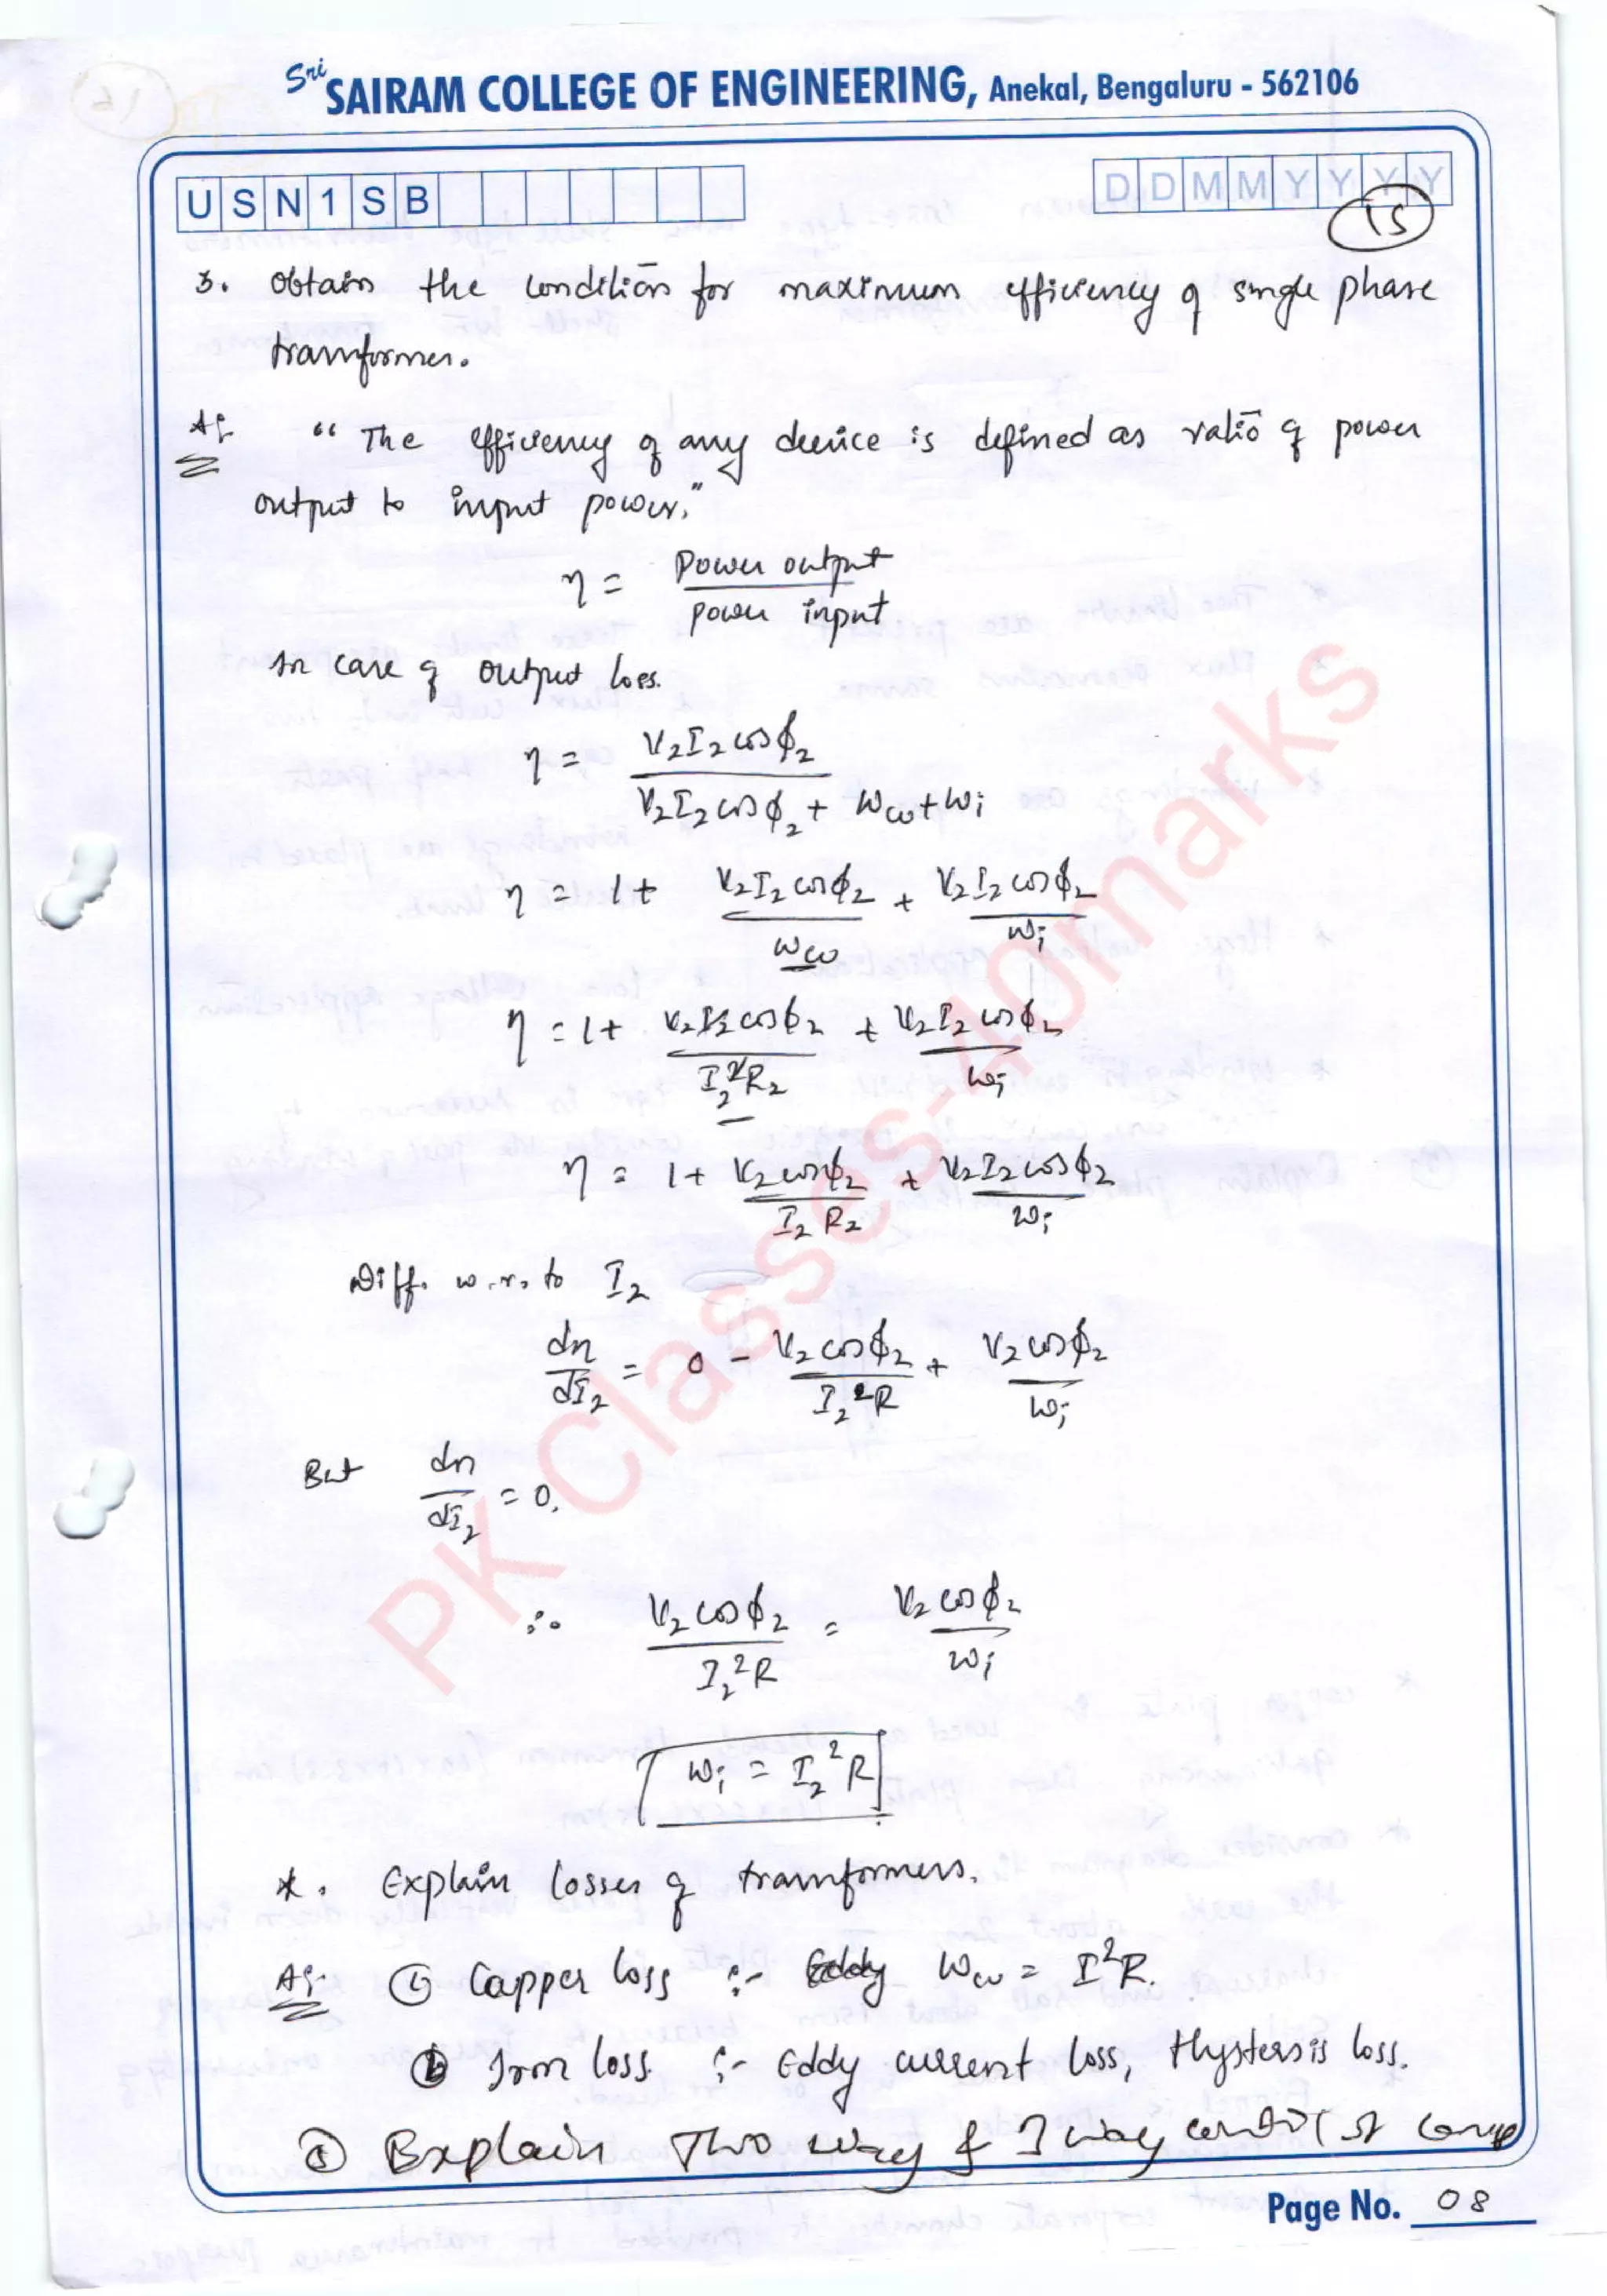 Sri SAIRAM COLLEGE OF ENGINEERING, Anekal, Bengaluru - 562106
U S N 1 S B
D D M M Y Y Y Y
15
3. Obtain the condition for maximum efficiency of single phase
transformer.
"The efficiency of any device is defined as ratio of power
output to input power."
η = Power output / power input
In case of output loss.
η = V₂I₂cosϕ₂ / V₂I₂cosϕ₂ + Wcu + Wi
η = 1 + V₂I₂cosϕ₂ / Wcu + V₂I₂cosϕ₂ / Wi
η = 1 + V₂I₂cosϕ₂ / I₂²R₂ + V₂I₂cosϕ₂ / Wi
η = 1 + V₂cosϕ₂ / I₂R₂ + V₂I₂cosϕ₂ / Wi
Diff. w.r. to I₂
dη/dI₂ = 0 - V₂cosϕ₂ / I₂²R + V₂cosϕ₂ / Wi
But dη/dI₂ = 0.
∴ V₂cosϕ₂ / I₂²R = V₂cosϕ₂ / Wi
Wi = I₂²R
*. Explain losses of transformers.
Capper loss :- Eddy Wcu = I²R.
Iron loss. :- Eddy current loss, Hysterisis loss.
Explain Two way & 3 way control of lamp
Page No. 08
PK Classes-40marks